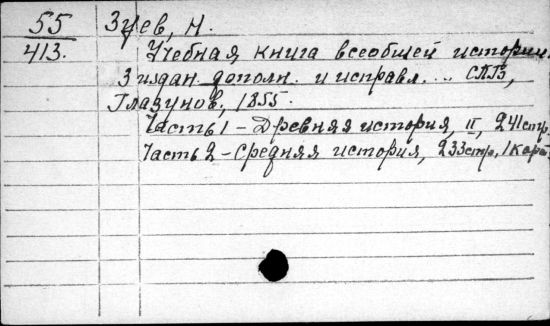 55 Зуев, Н.
413. Учебная книга всеобщей истории.
3 издан. дополн. и исправл... СПБ,
Глазунов, 1855.
Часть 1 - Древняя история, II, 241 стр.
Часть 2 - Средняя история, 233 стр., 1 карт.